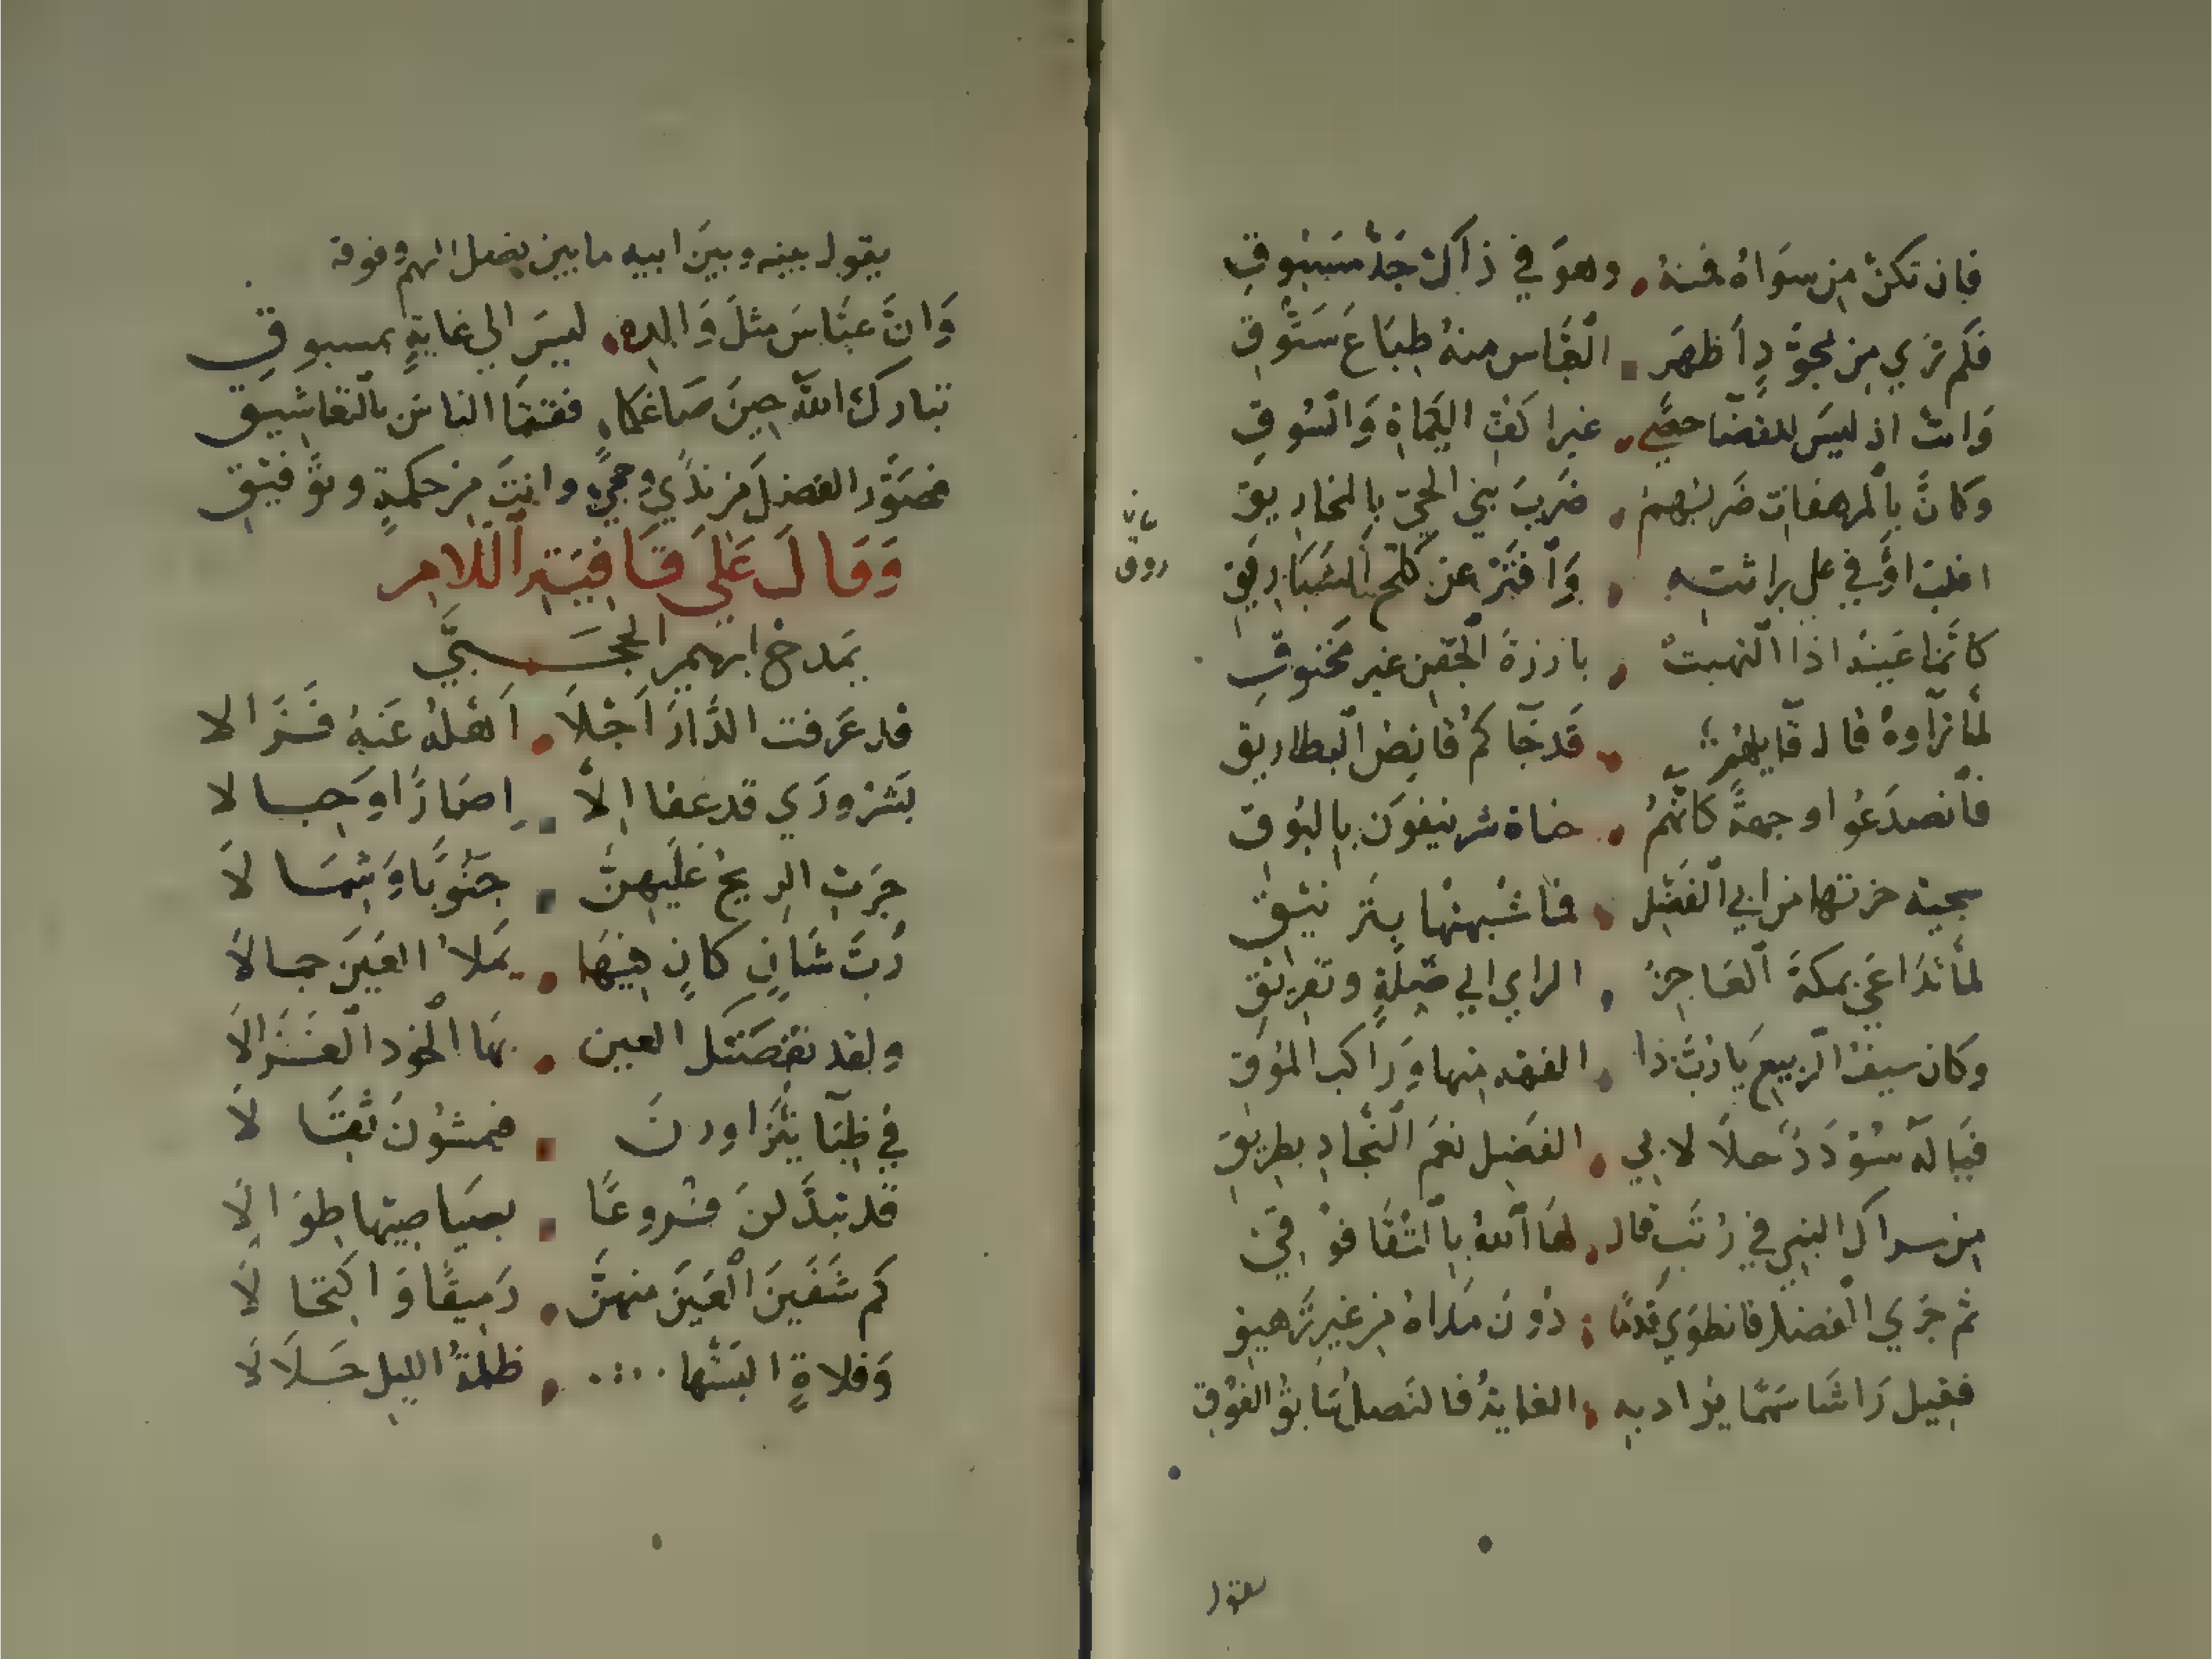 فان تكن من سواه فمنه وهو في ذاك جد مسبوق
فكم تري من مجود اظهر القياس منه طباع ستوق
وانت اذ ليس للقضا حصي غير اكف الكماة والسوق
وكان بالمرهفات ضربهم ضرب بني الحي بالمخاريق
اغلب اوفي علي براثنه وافتر عن كلح الشبا روق
كانما عينه اذا التهبت بارزة الجفن غير مخنوق
لما تراوه قال قايلهم قد جاكم قانص البطاريق
فانصدعوا وجهة كانهم جناة شر ينفون بالبوق
حزتها من ابي الفضل فما شبهتها بترنيق
لما تداعي بمكة العاجز الراي الي ضلة وتفريق
وكان سيف الربيع يادب ذا الفقه منها وراكب الموق
فياله سوددا خلا لابي الفضل نعم النجاد بطريق
من سر اك النبي في رتب قال لها الله بالتقا فوقي
ثم جري الفضل فانطوي قدما دون مداه من غير ترهيق
فقيل راشا سهما يراد به الغاية فالنصل سابق الفوق
روق
يقول
يقول بينه وبين ابيه ما بين نصل السهم وفوقه
وان عباس مثل والده ليس الي غاية بمسبوق
تبارك الله حين صاغكما ففتما الناس بالتغاشيق
فصور الفضل من ندي وحجي وانت من حكمة وتوفيق
وقال علي قافية اللام
يمدح ابرهيم الحجبي
قد عرفت الدار اجلا اهله عنه فزالا
بشروري قد عفا الا اصارا او جبالا
جرت الريح عليهن جنوبا وشمالا
رب شان كان فيها يملا العين جمالا
ولقد تقتصتك العين بها الخود الغزالا
في ظبا يتزاورن فيمشون ثقالا
قد تبدلن فروعا بصياصيها طوالا
كم شفين العين منهن رميقا واكتحالا
وفلاة البستها ظلمة الليل جلالا